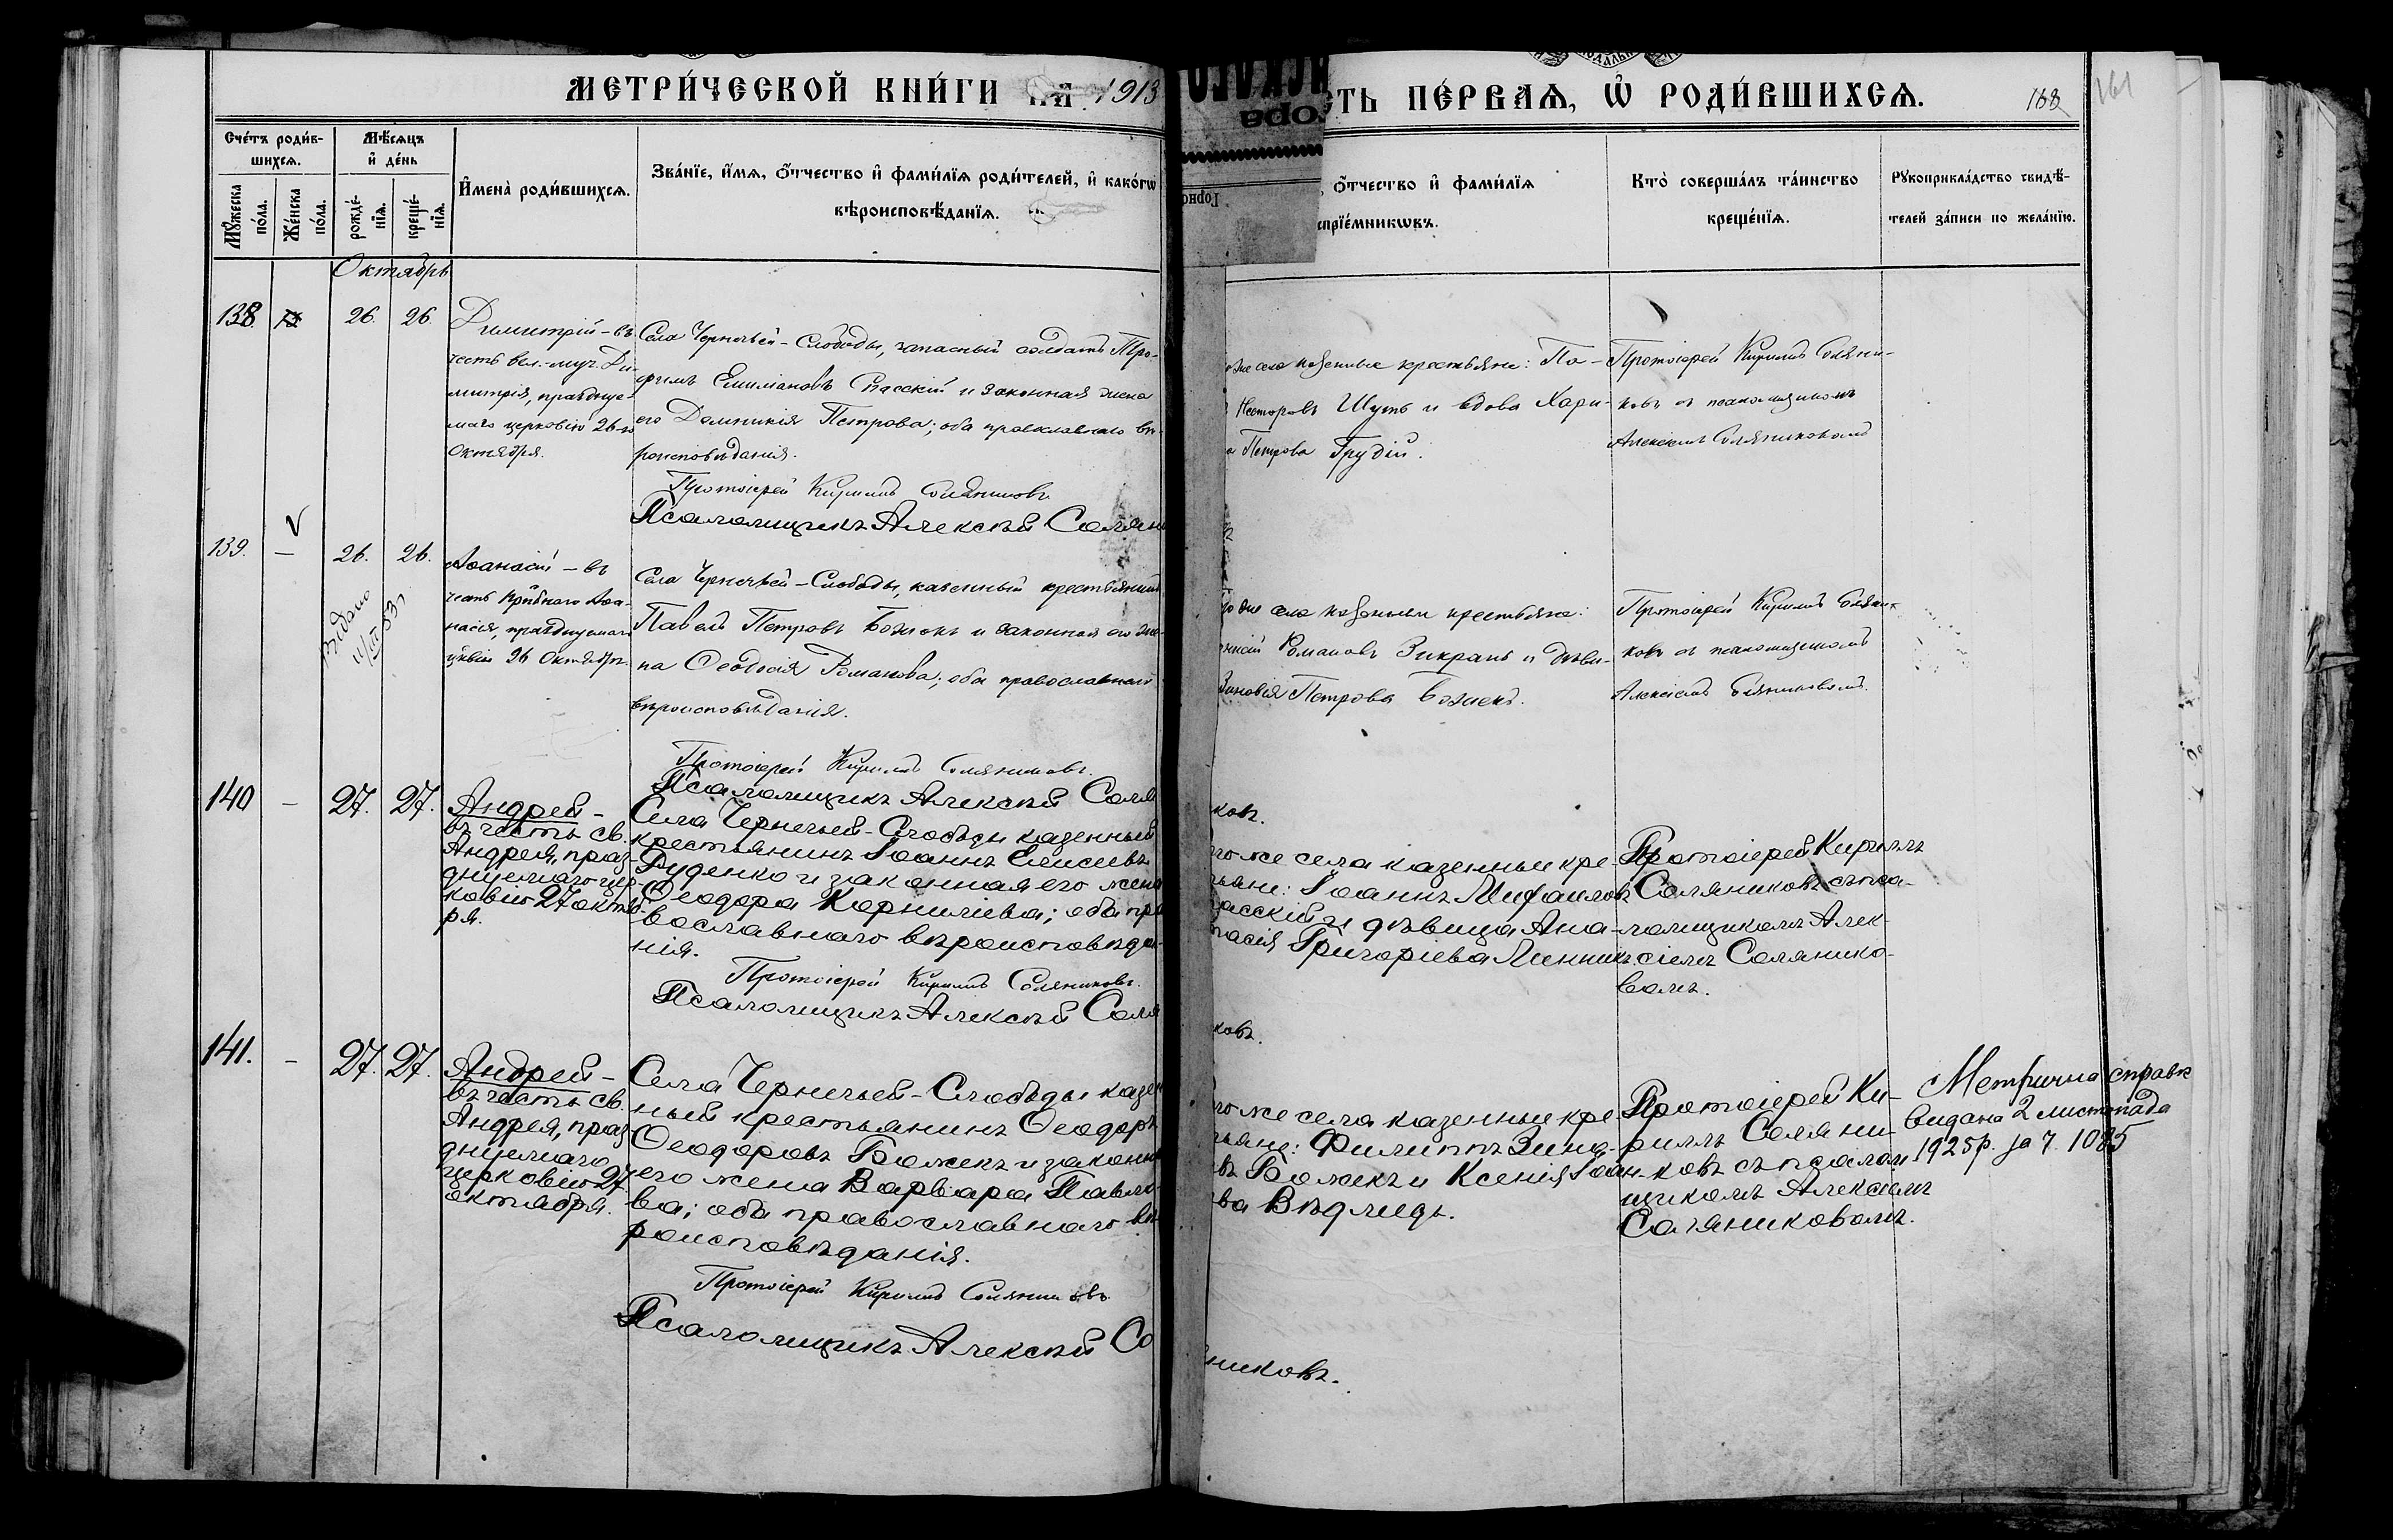 МЕТРИ́ЧЕСКОЙ КНИ́ГИ НА 1913
СТЬ ПЕ́РВАѦ, Ѡ҆ РОДИ́ВШИХСѦ.
168
161
Сче́тъ роди́в-
шихсѧ.
Мѣ́сѧцъ
и҆ де́нь
Мꙋ́жеска
по́ла.
Же́нска
по́ла.
рожде́-
нїѧ.
креще́-
нїѧ.
И҆мена̀ роди́вшихсѧ.
Зва́нїе, и҆́мѧ, ѻ҆́тчество и҆ фами́лїѧ роди́телей, и҆ како́гѡ
вѣроисповѣ́данїѧ.
, ѻ҆́тчество и҆ фами́лїѧ
спрїе́мникѡвъ.
Кто̀ соверша́лъ та́инство
креще́нїѧ.
Рꙋкоприкла́дство свидѣ́-
телей за́писи по жела́нїю.
Октябрь
138.
26.
26.
Димитрій – въ
честь вел.-муч. Ди-
митрія, праздnуе-
маго церковію 26-го
Октября.
Села Чернечьей-Слободы, запасный солдатъ Тро-
фимъ Емиліановъ Спасскій и законная жена
его Домникія Петрова; оба православнаго вѣ-
роисповѣданія.
Протоіерей Кириллъ Соляниковъ
Псаломщикъ Алексѣй Соляни
же села казенные крестьяне: Па-
Несторовъ Шуть и вдова Хари-
а Петрова Грудій.
Протоіерей Кириллъ Соляни-
ковъ съ псаломщикомъ
Алексіемъ Соляниковымъ
139.
–
26.
26.
Видано
Аѳанасій – въ
честь прпбнаго Аѳа-
насія, празднуемаго
црквію 26 Октября.
Села Чернечьей-Слободы, казенный крестьянинъ
Павелъ Петровъ Божокъ и законная его же-
на Ѳеодосія Романова; оба православнаго
вѣроисповѣданія.
Протоіерей Кириллъ Соляниковъ.
Псаломщикъ Алексѣй Соля
ковъ.
го же села казенные крестьяне:
Романовъ Зикрань и дѣви-
Зиновія Петрова Божекъ.
Протоіерей Кириллъ Соляни-
ковъ съ псаломщикомъ
Алексіемъ Соляниковымъ.
140
–
27.
27.
Андрей –
въ честь св.
Андрея, праз-
днуемаго цер-
ковію 27 октяб-
ря.
Села Чернечьей-Слободы казенный
крестьянинъ Іоаннъ Елисеевъ
Руденко и законная его жена
Ѳеодора Корниліева; оба пра
вославнаго вѣроисповѣда-
нія.
Протоіерей Кириллъ Соляниковъ.
Псаломщикъ Алексѣй Соля
ковъ.
го же села казенные кре-
тьяне: Іоаннъ Михаиловъ
пасскій и дѣвица Ана-
тасія Григоріева Линникъ.
Протоіерей Кириллъ
Соляниковъ съ пса-
ломщикомъ Алек-
сіемъ Солянико-
вымъ.
141.
–
27.
27.
Андрей –
въ честь св.
Андрея, праз-
днуемаго
церковію 27
октября.
Села Чернечьей-Слободы казен
ный крестьянинъ Ѳеодоръ
Ѳеодоровъ Божекъ и законная
его жена Варвара Павло-
ва; оба православнаго вѣ-
роисповѣданія.
Протоіерей Кириллъ Соляниковъ
Псаломщикъ Алексѣй Со
никовъ.
го же села казенные кре-
тьяне: Филиппъ Зино-
въ Божекъ и Ксенія Іоан-
ва Вѣдмидь.
Протоіерей Ки-
риллъ Соляни-
ковъ съ псалом
щикомъ Алексіемъ
Соляниковымъ.
Метрична справк
видана 2 листопада
1925 р. за ч. 1085